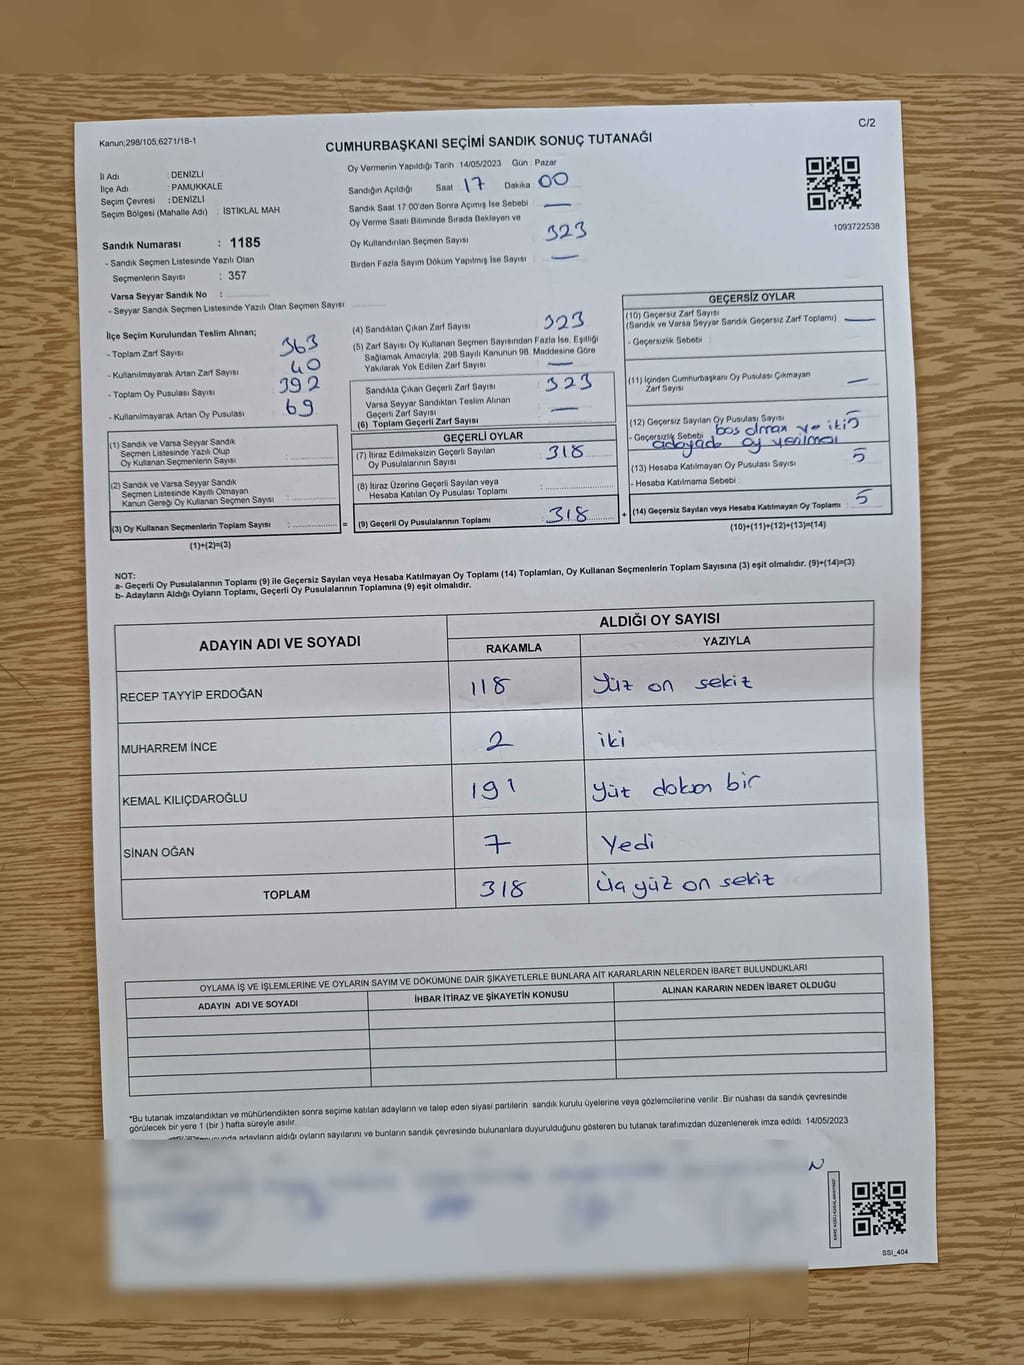 Kanun;298/105,6271/18-1
C/2
CUMHURBAŞKANI SEÇİMİ SANDIK SONUÇ TUTANAĞI
İl Adı : DENİZLİ
İlçe Adı : PAMUKKALE
Seçim Çevresi : DENİZLİ
Seçim Bölgesi (Mahalle Adı) : İSTİKLAL MAH
Sandık Numarası : 1185
- Sandık Seçmen Listesinde Yazılı Olan
Seçmenlerin Sayısı : 357
Varsa Seyyar Sandık No :
- Seyyar Sandık Seçmen Listesinde Yazılı Olan Seçmen Sayısı:
Oy Vermenin Yapıldığı Tarih : 14/05/2023 Gün : Pazar
Sandığın Açıldığı Saat 17 Dakika 00
Sandık Saat 17:00'den Sonra Açımış İse Sebebi : —
Oy Verme Saati Bitiminde Sırada Bekleyen ve
Oy Kullandırılan Seçmen Sayısı : 323
Birden Fazla Sayım Döküm Yapılmış İse Sayısı : —
1093722538
İlçe Seçim Kurulundan Teslim Alınan;
- Toplam Zarf Sayısı : 363
- Kullanılmayarak Artan Zarf Sayısı : 40
- Toplam Oy Pusulası Sayısı : 392
- Kullanılmayarak Artan Oy Pusulası : 69
(1) Sandık ve Varsa Seyyar Sandık
Seçmen Listesinde Yazılı Olup
Oy Kullanan Seçmenlerin Sayısı :
(2) Sandık ve Varsa Seyyar Sandık
Seçmen Listesinde Kayıtlı Olmayan
Kanun Gereği Oy Kullanan Seçmen Sayısı :
(3) Oy Kullanan Seçmenlerin Toplam Sayısı : =
(1)+(2)=(3)
(4) Sandıktan Çıkan Zarf Sayısı : 323
(5) Zarf Sayısı Oy Kullanan Seçmen Sayısından Fazla İse, Eşitliği
Sağlamak Amacıyla, 298 Sayılı Kanunun 98. Maddesine Göre
Yakılarak Yok Edilen Zarf Sayısı : —
Sandıkta Çıkan Geçerli Zarf Sayısı : 323
Varsa Seyyar Sandıktan Teslim Alınan
Geçerli Zarf Sayısı : —
(6) Toplam Geçerli Zarf Sayısı :
GEÇERLİ OYLAR
(7) İtiraz Edilmeksizin Geçerli Sayılan
Oy Pusulalarının Sayısı : 318
(8) İtiraz Üzerine Geçerli Sayılan veya
Hesaba Katılan Oy Pusulası Toplamı :
(9) Geçerli Oy Pusulalarının Toplamı : 318 +
GEÇERSİZ OYLAR
(10) Geçersiz Zarf Sayısı
(Sandık ve Varsa Seyyar Sandık Geçersiz Zarf Toplamı) : —
- Geçersizlik Sebebi :
(11) İçinden Cumhurbaşkanı Oy Pusulası Çıkmayan
Zarf Sayısı : —
(12) Geçersiz Sayılan Oy Pusulası Sayısı : 5
- Geçersizlik Sebebi boş olması ve iki
adayada oy verilmesi
(13) Hesaba Katılmayan Oy Pusulası Sayısı : 5
- Hesaba Katılmama Sebebi :
(14) Geçersiz Sayılan veya Hesaba Katılmayan Oy Toplamı : 5
(10)+(11)+(12)+(13)=(14)
NOT:
a- Geçerli Oy Pusulalarının Toplamı (9) ile Geçersiz Sayılan veya Hesaba Katılmayan Oy Toplamı (14) Toplamları, Oy Kullanan Seçmenlerin Toplam Sayısına (3) eşit olmalıdır. (9)+(14)=(3)
b- Adayların Aldığı Oyların Toplamı, Geçerli Oy Pusulalarının Toplamına (9) eşit olmalıdır.
ADAYIN ADI VE SOYADI ALDIĞI OY SAYISI
RAKAMLA YAZIYLA
RECEP TAYYİP ERDOĞAN 118 Yüz on sekiz
MUHARREM İNCE 2 iki
KEMAL KILIÇDAROĞLU 191 Yüz doksan bir
SİNAN OĞAN 7 Yedi
TOPLAM 318 Üç yüz on sekiz
OYLAMA İŞ VE İŞLEMLERİNE VE OYLARIN SAYIM VE DÖKÜMÜNE DAİR ŞİKAYETLERLE BUNLARA AİT KARARLARIN NELERDEN İBARET BULUNDUKLARI
ADAYIN ADI VE SOYADI İHBAR İTİRAZ VE ŞİKAYETİN KONUSU ALINAN KARARIN NEDEN İBARET OLDUĞU
*Bu tutanak imzalandıktan ve mühürlendikten sonra seçime katılan adayların ve talep eden siyasi partilerin sandık kurulu üyelerine veya gözlemcilerine verilir .Bir nüshası da sandık çevresinde
görülecek bir yere 1 (bir ) hafta süreyle asılır.
adayların aldığı oyların sayılarını ve bunların sandık çevresinde bulunanlara duyurulduğunu gösteren bu tutanak tarafımızdan düzenlenerek imza edildi. 14/05/2023
SSI_404